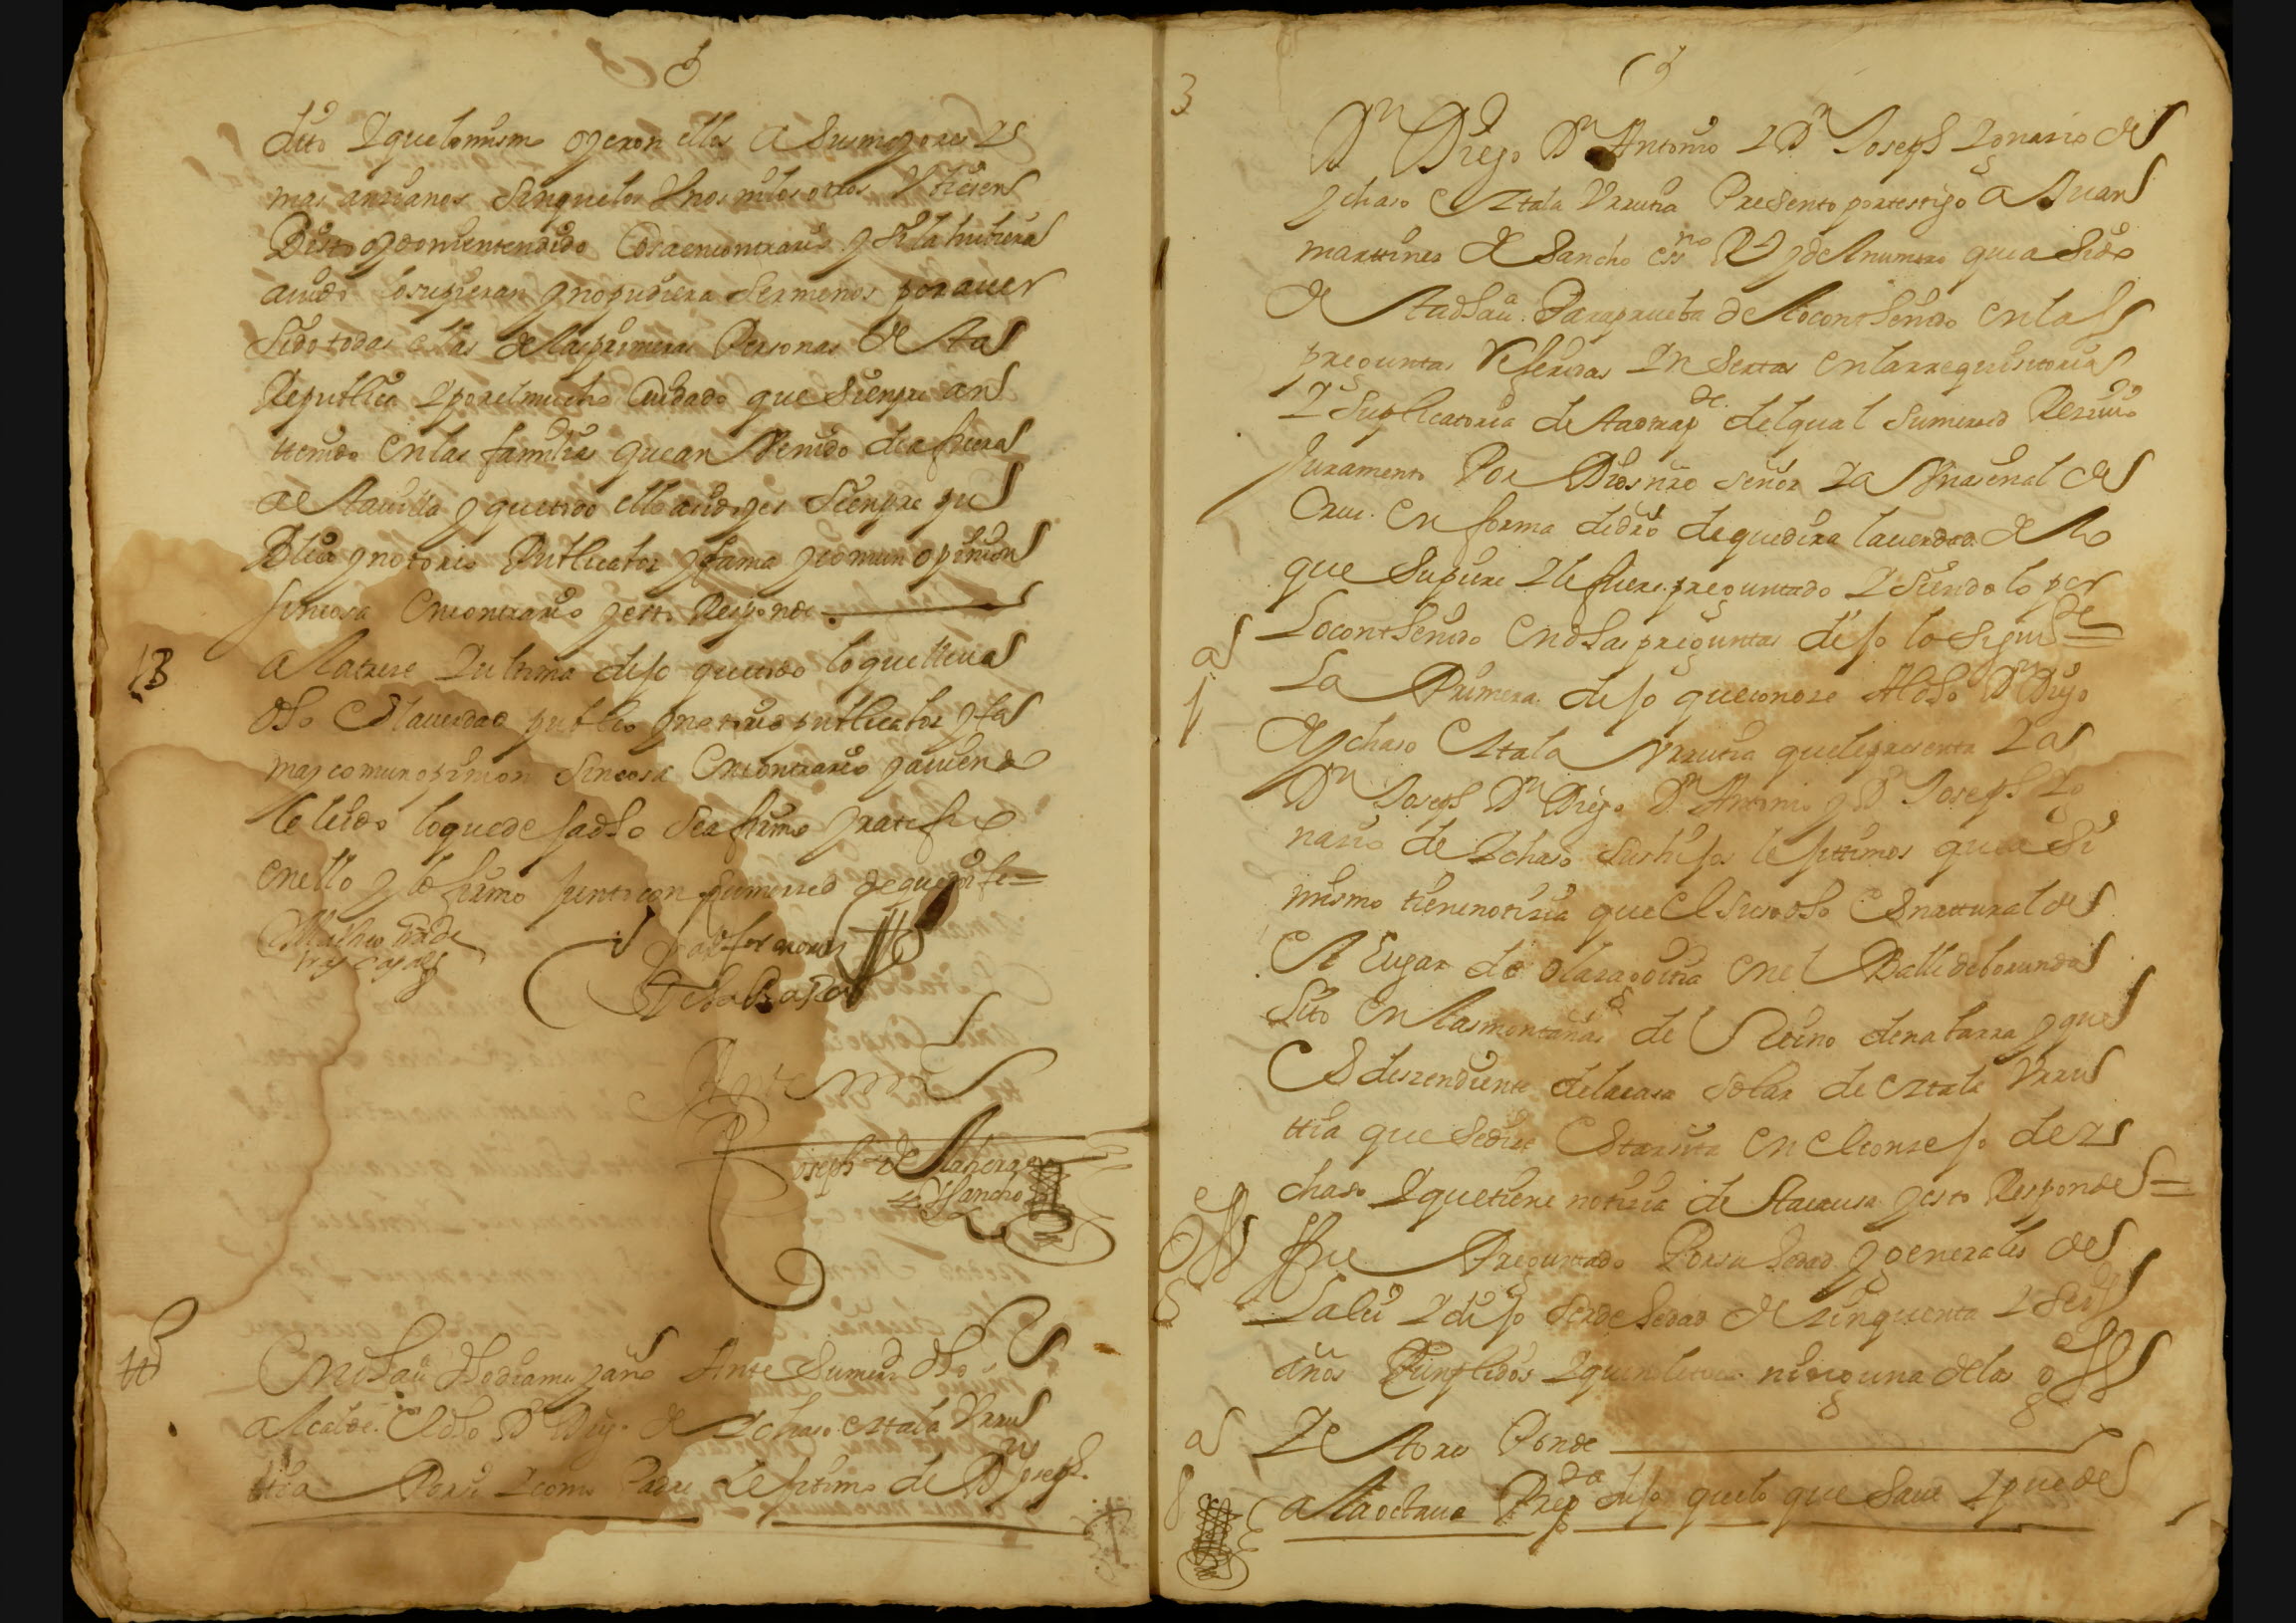 dito Y que lo mismo oyeron ellos a sus mayores Y
mas anzianos sin que los Unos ni los otros Vbiesen
Visto oydo ni entendido Cosa en contrario y si la hubiera
auido lo supieran y no pudiera ser menos por auer
sido todas ellas de las primeras Personas de sta
Republica Y por el mucho Cuidado que siempre an
tenido en las familias que an Venido de a fuera
de sta uilla y que todo ello a sido y es siempre pu
blico y notorio Publica boz y fama y comun opinion
sin cosa en contrario y esto Responde
13 a la treze Y ultima dijo que todo lo que lleua
dho es la uerdad publico y notorio publica boz y fa
ma y comun opinion sin cosa en contrario y auiendo
le leido lo que deja dho se afirmo y ratifico
en ello y lo firmo junto con su merced de que doi fe =
Ante mi
Joseph de
Sancho
tt
En dha uilla dho dia mes y año Ante su merd dho
alcalde el dho Dn Diego de Ychaso eztala Vrru
ttia Por si Y como Padre lejitimo de Dn Joseph
3
Dn Diego Dn Antonio Y Dn Joseph Ygnazio de
Ychaso eztala Vrrutia Presento por testigo a Juan
martines de Sancho essno Rl y del numero que a sido
de sta dha ua Para prueba de lo conthenido en las
preguntas Referidas Insertas en la rrequisitoria
Y Suplicatoria de sta otra pte del qual su merced Resiuio
Juramento Por Dios nro señor Y a Una señal de
Cruz en forma de dro de que dira la uerdad de lo
que supiere Y le fuere preguntado Y siendolo por
Lo conthenido en dhas preguntas dijo lo siguite =
a
1
La Primera dijo que conose Al dho Dn Diego
de Ychaso eztala Vrrutia que le presenta Y a
Dn Joseph Dn Diego Dn Antonio y Dn Joseph Yg
nazio de Ychaso sus hijos lejittimos que a si
mismo tiene notizia que el suso dho es nattural de
el Lugar de olazagoitia en el Balle de borunda
sito en las montañas del Reino de nabarra y que
es deszendiente de la casa solar de eztala Vrru
ttia que se dize esta sita en el conzejo de Y
chaso Y que tiene notizia de sta causa y esto Responde =
Fue Preguntado Por su hedad y generales de
La lei Y dijo ser de hedad de zinquenta Y seis
años Cunplidos Y que no le toca ninguna de las
Y esto Res Ponde
a
8
a la octaua Pregta dijo que lo que saue Y puede